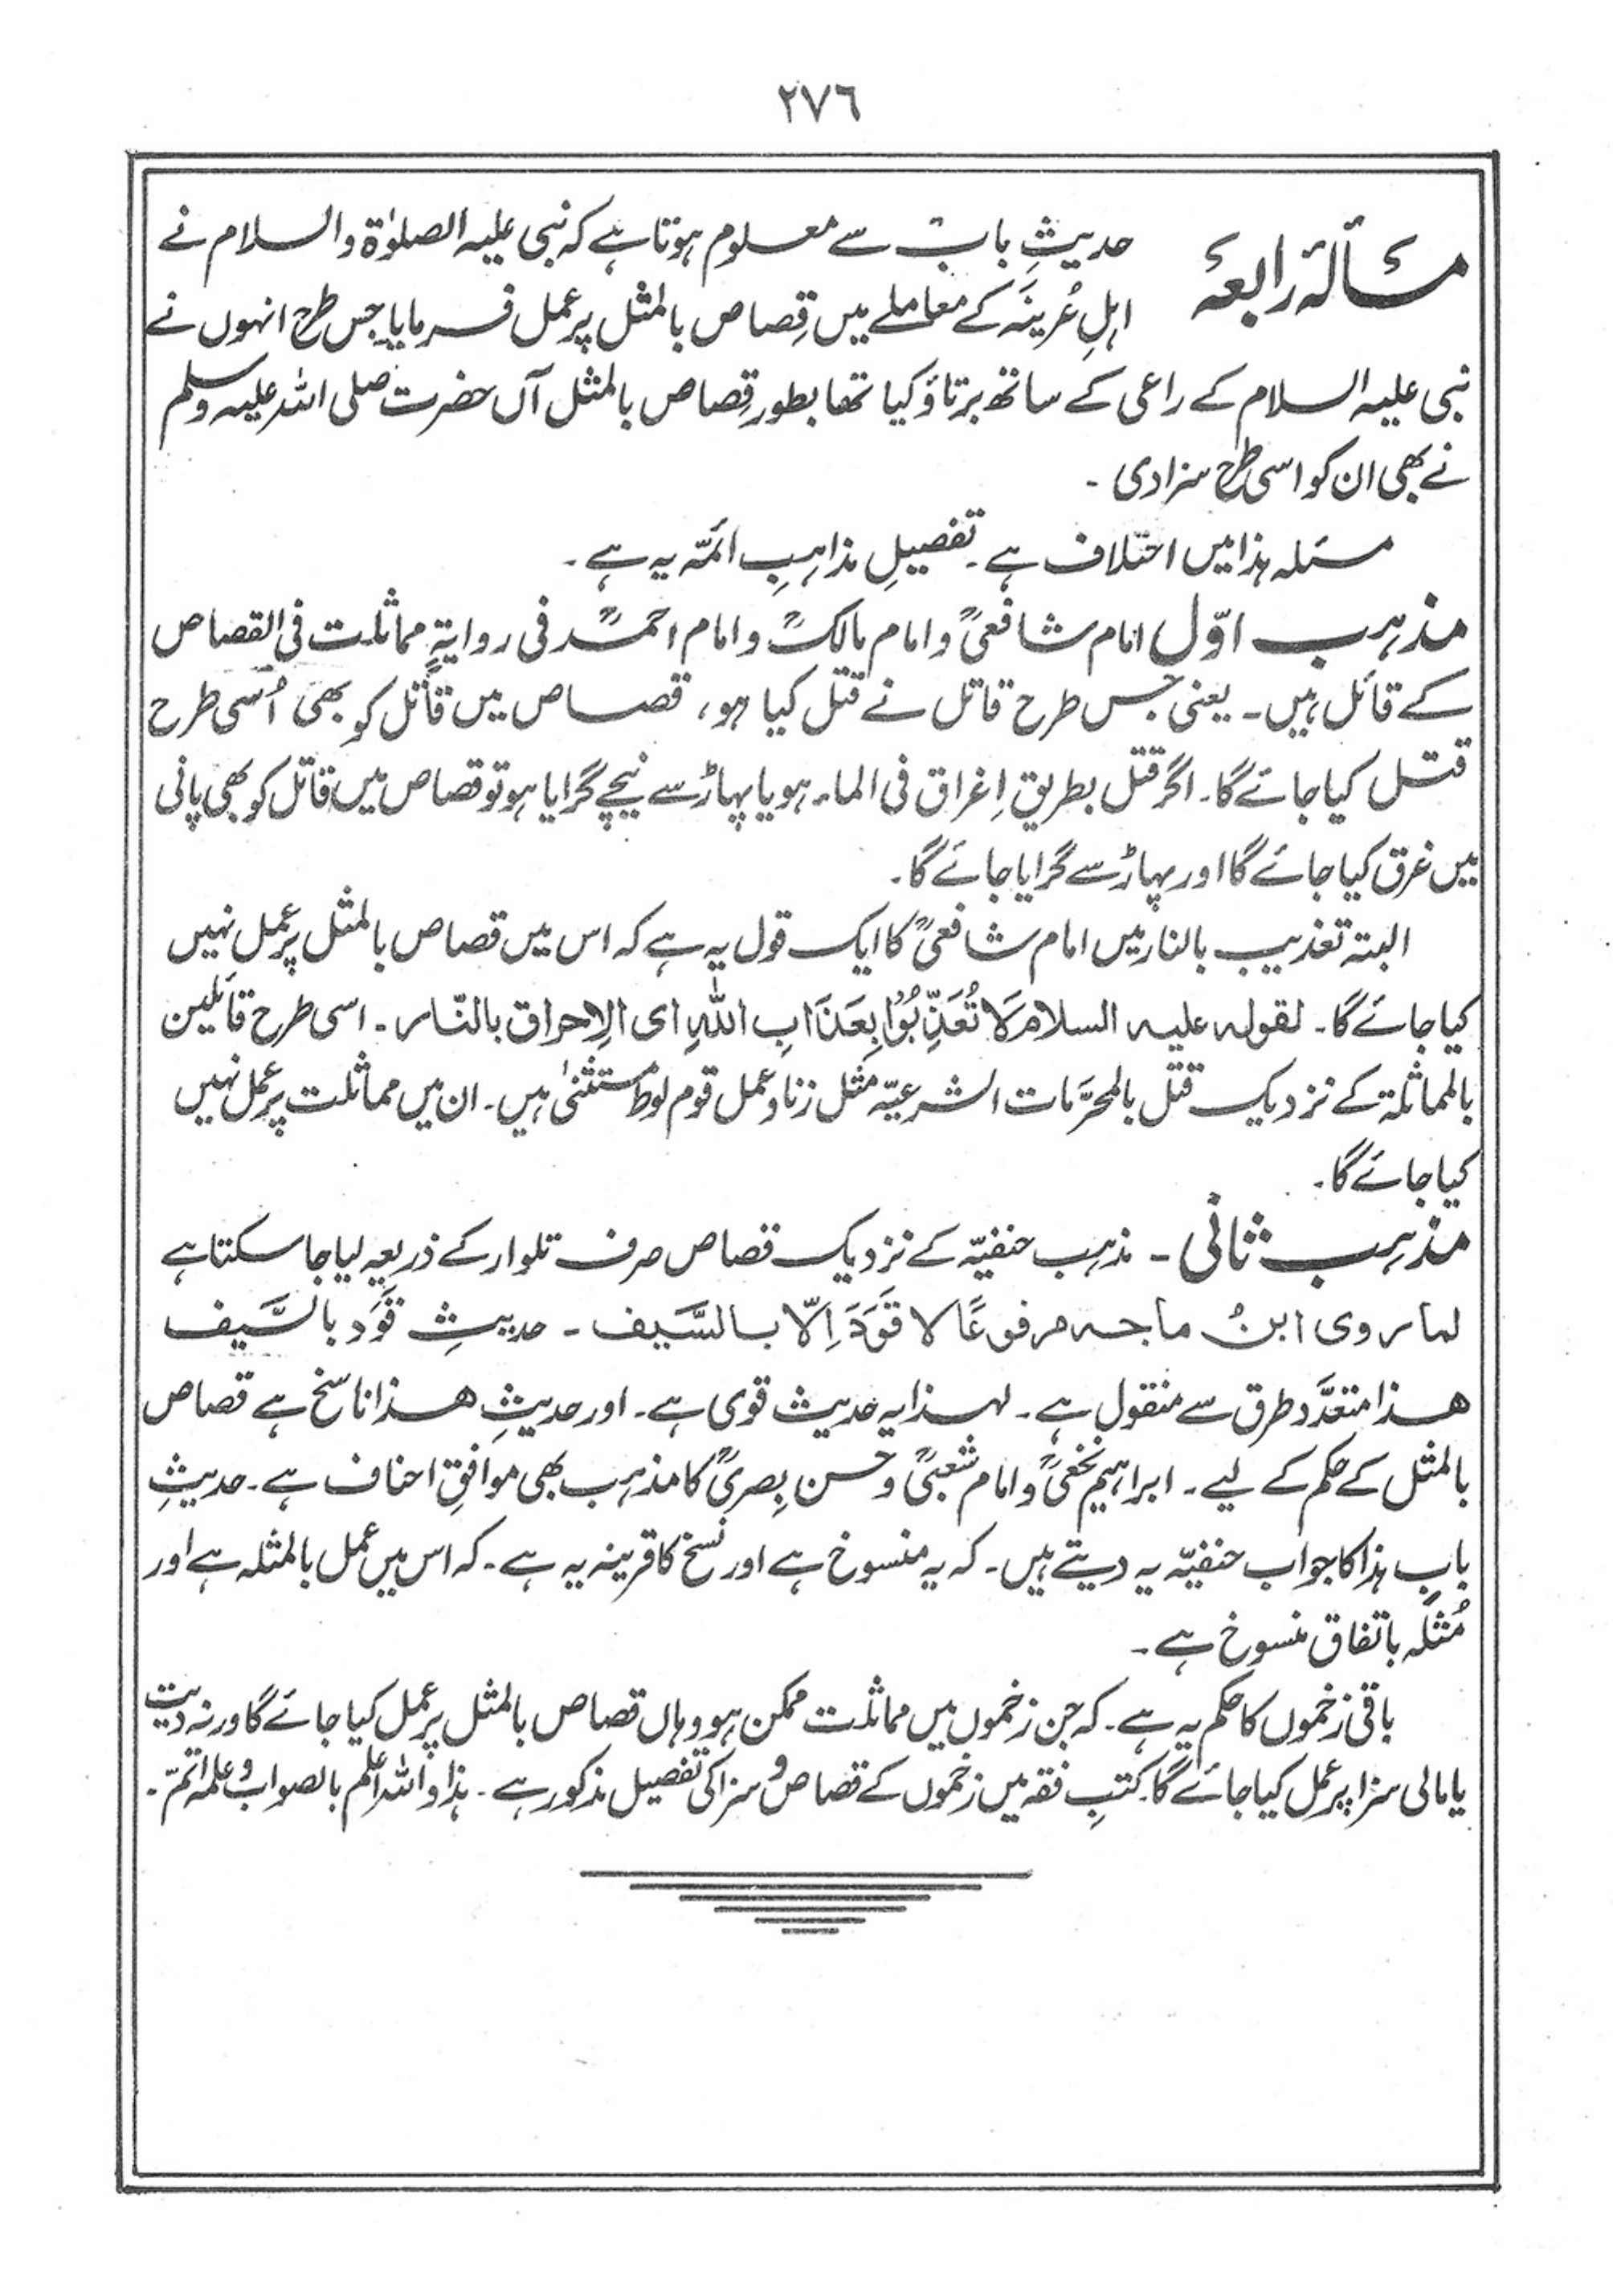 ٢٧٦
مسألۂ رابعہ حدیثِ باب سے معلوم ہوتا ہے کہ نبی علیہ الصلوٰۃ والسلام نے
اہلِ عُرینَہ کے معاملے میں قِصاص بالمثل پر عمل فرمایا جس طرح انہوں نے
نبی علیہ السلام کے راعی کے ساتھ برتاؤ کیا تھا بطورِ قِصاص بالمثل آں حضرت صلی اللہ علیہ وسلم
نے بھی ان کو اسی طرح سزا دی ۔
مسئلہ ہذا میں اختلاف ہے ۔ تفصیلِ مذاہبِ ائمّہ یہ ہے ۔
مذہب اوّل امام شافعیؒ و امام مالکؒ و امام احمدؒ فی روایۃٍ مماثلت فی القصاص
کے قائل ہیں ۔ یعنی جس طرح قاتل نے قتل کیا ہو، قصاص میں قاتل کو بھی اُسی طرح
قتل کیا جائے گا ۔ اگر قتل بطریقِ اِغراق فی الماء ہو یا پہاڑ سے نیچے گرایا ہو تو قصاص میں قاتل کو بھی پانی
میں غرق کیا جائے گا اور پہاڑ سے گرایا جائے گا ۔
البتہ تعذیب بالنار میں امام شافعیؒ کا ایک قول یہ ہے کہ اس میں قصاص بالمثل پر عمل نہیں
کیا جائے گا ۔ لقولہ علیہ السلام لَا تُعَذِّبُوْا بِعَذَابِ اللّٰہِ ای الاِحراق بالنّار ۔ اسی طرح قائلین
بالمماثلۃ کے نزدیک قتل بالمحرَّمات الشرعیّہ مثل زنا و عمل قوم لوط مستثنیٰ ہیں ۔ ان میں مماثلت پر عمل نہیں
کیا جائے گا ۔
مذہب ثانی ۔ مذہب حنفیّہ کے نزدیک قصاص صرف تلوار کے ذریعہ لیا جا سکتا ہے
لما روی ابنُ ماجہ مرفوعًا لا قَوَدَ اِلّا بالسَّیف ۔ حدیثِ قَوَد بالسَّیف
ھذا متعدَّد طرق سے منقول ہے ۔ لہذا یہ حدیث قوی ہے ۔ اور حدیثِ ھذا ناسخ ہے قصاص
بالمثل کے حکم کے لیے ۔ ابراہیم نخعیؒ و امام شعبیؒ و حسن بِصریؒ کا مذہب بھی موافقِ احناف ہے ۔ حدیثِ
بابِ ہذا کا جواب حنفیّہ یہ دیتے ہیں ۔ کہ یہ منسوخ ہے اور نسخ کا قرینہ یہ ہے ۔ کہ اس میں عمل بالمثلہ ہے اور
مُثلہ باتفاق منسوخ ہے ۔
باقی زخموں کا حکم یہ ہے ۔ کہ جن زخموں میں مماثلت ممکن ہو وہاں قصاص بالمثل پر عمل کیا جائے گا ورنہ دیت
یا مالی سزا پر عمل کیا جائے گا ۔ کتبِ فقہ میں زخموں کے قصاص و سزا کی تفصیل مذکور ہے ۔ ہذا واللہ اعلم بالصواب و علمہ اتمّ ۔